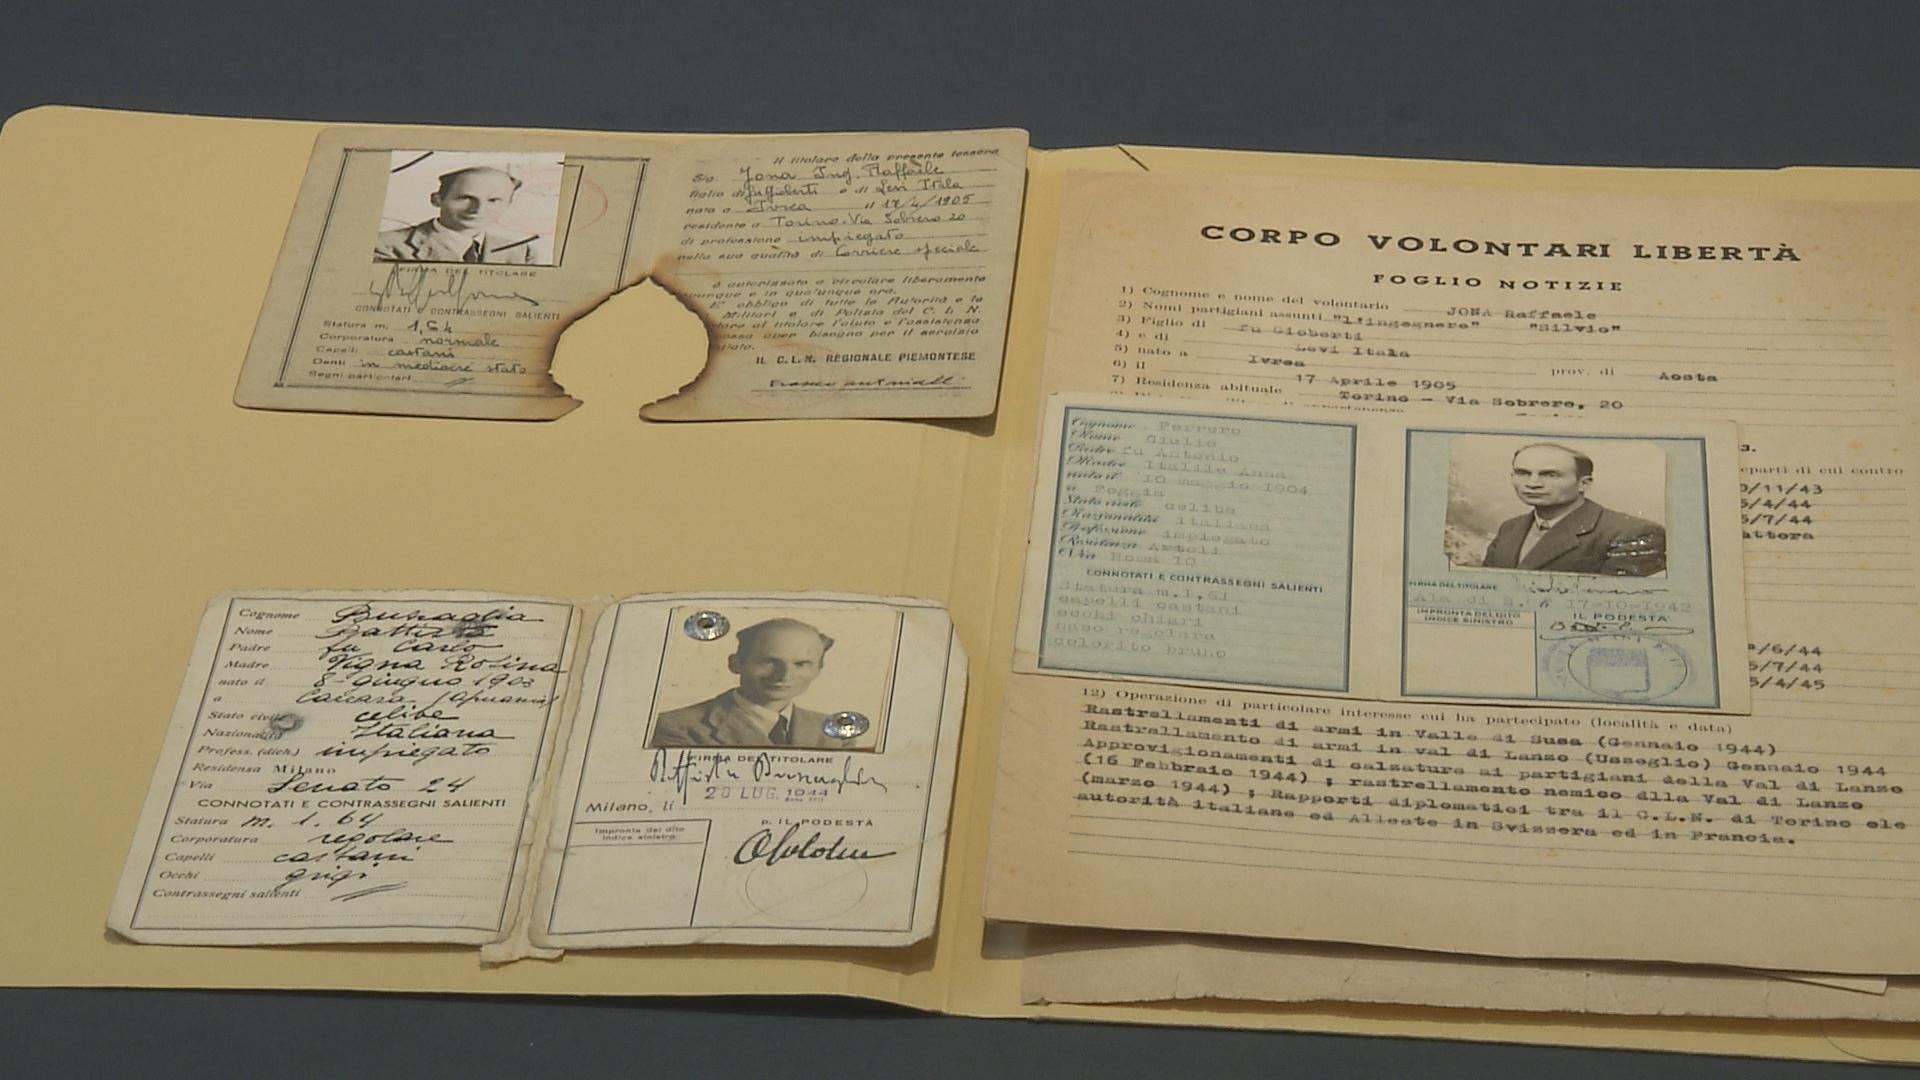 Il titolare della presente tessera
Sig. Jona Ing. Raffaele
figlio di fu Gioberti e di Levi Itala
nato a Ivrea il 17/4/1905
residente a Torino. Via Sobrero 20
di professione impiegato
nella sua qualità di Corriere speciale
è autorizzato a circolare liberamente
unque e in qualunque ora.
E' obbligo di tutte le Autorità e le
Militari e di Polizia del C. L. N.
tare al titolare l'aiuto e l'assistenza
possa aver bisogno per il servizio
IL C.L.N. REGIONALE PIEMONTESE
FIRMA DEL TITOLARE
CONNOTATI E CONTRASSEGNI SALIENTI
Statura m. 1,64
Corporatura normale
Capelli castani
Denti in mediocre stato
Segni particolari
Cognome Bussaglia
Nome Battista
Padre fu Carlo
Madre Vigna Rosina
nato il 8 - giugno 1903
a Carrara (Apuania)
Stato civile celibe
Nazionalità Italiana
Profess. (dich.) impiegato
Residenza Milano
Via Senato 24
CONNOTATI E CONTRASSEGNI SALIENTI
Statura m. 1.64
Corporatura regolare
Capelli castani
Occhi grigi
Contrassegni salienti
FIRMA DEL TITOLARE
Battista Bussaglia
Milano, li 28 LUG. 1944
Impronta del dito
indice sinistro
p. IL PODESTÀ
CORPO VOLONTARI LIBERTÀ
FOGLIO NOTIZIE
1) Cognome e nome del volontario JONA Raffaele
2) Nomi partigiani assunti "l'ingegnere" "Silvio"
3) Figlio di fu Gioberti
4) e di Levi Itala
5) nato a Ivrea prov. di Aosta
6) il 17 Aprile 1905
7) Residenza abituale Torino - Via Sobrero, 20
3.
eparti di cui contro
0/11/43
5/4/44
5/7/44
attora
Cognome Ferrero
Nome Giulio
Padre fu Antonio
Madre Italile Anna
nato il 10 maggio 1904
a Foggia
Stato civile celibe
Nazionalità italiana
Professione impiegato
Residenza Artoli
Via Roma 10
CONNOTATI E CONTRASSEGNI SALIENTI
Statura m.1,61
capelli castani
occhi chiari
naso regolare
colorito bruno
FIRMA DEL TITOLARE
17-10-1942
IMPRONTA DEL DITO
INDICE SINISTRO
IL PODESTA'
/6/44
5/7/44
5/4/45
12) Operazione di particolare interesse cui ha partecipato (località e data)
Rastrellamenti di armi in Valle di Susa (Gennaio 1944)
Rastrellamento di armi in val di Lanzo (Usseglio) Gennaio 1944
Approvigionamenti di calzature ai partigiani della Val di Lanzo
(16 Febbraio 1944) ; rastrellamento nemico dlla Val di Lanzo
(marzo 1944) ; Rapporti diplomatici tra il C.L.N. di Torino ele
autorità italiane ed Alleate in Svizzera ed in Francia.